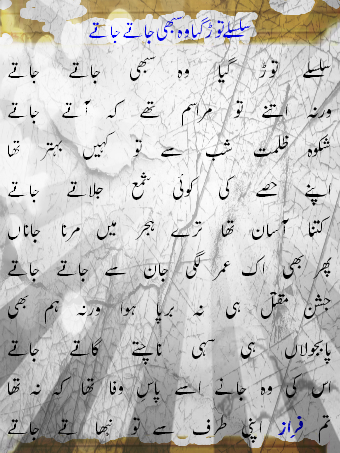 سلسلے توڑ گیا وہ سبھی جاتے جاتے
سلسلے توڑ گیا وہ سبھی جاتے جاتے
ورنہ اتنے تو مراسم تھے کہ آتے جاتے
شکوہ ظلمت شب سے تو کہیں بہتر تھا
اپنے حصے کی کوئی شمع جلاتے جاتے
کتنا آسان تھا ترے ہجر میں مرنا جاناں
پھر بھی اک عمر لگی جان سے جاتے جاتے
جشن مقتل ہی نہ برپا ہوا ورنہ ہم بھی
پابجولاں ہی سہی ناچتے گاتے جاتے
اس کی وہ جانے اسے پاس وفا تھا کہ نہ تھا
تم فراز اپنی طرف سے تو نبھا تے جاتے